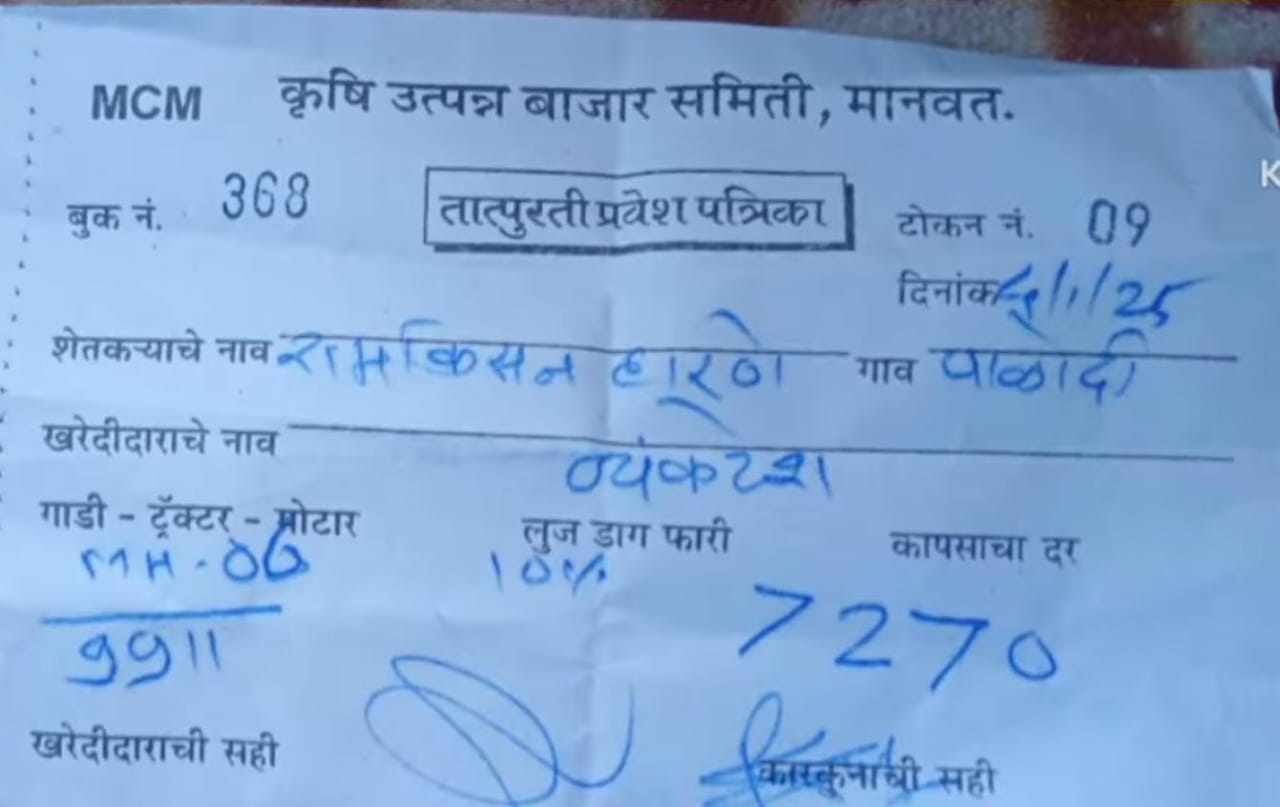 MCM कृषि उत्पन्न बाजार समिती, मानवत.
बुक नं. 368 तात्पुरती प्रवेश पत्रिका टोकन नं. 09
दिनांक /1/25
शेतकऱ्याचे नाव रामकिसन हारणे गाव पाळोदी
खरेदीदाराचे नाव व्यंकटेश
गाडी - ट्रॅक्टर - मोटार लुज डाग फारी कापसाचा दर
MH-06 10% 7270
9911
खरेदीदाराची सही कारकुनाची सही
K